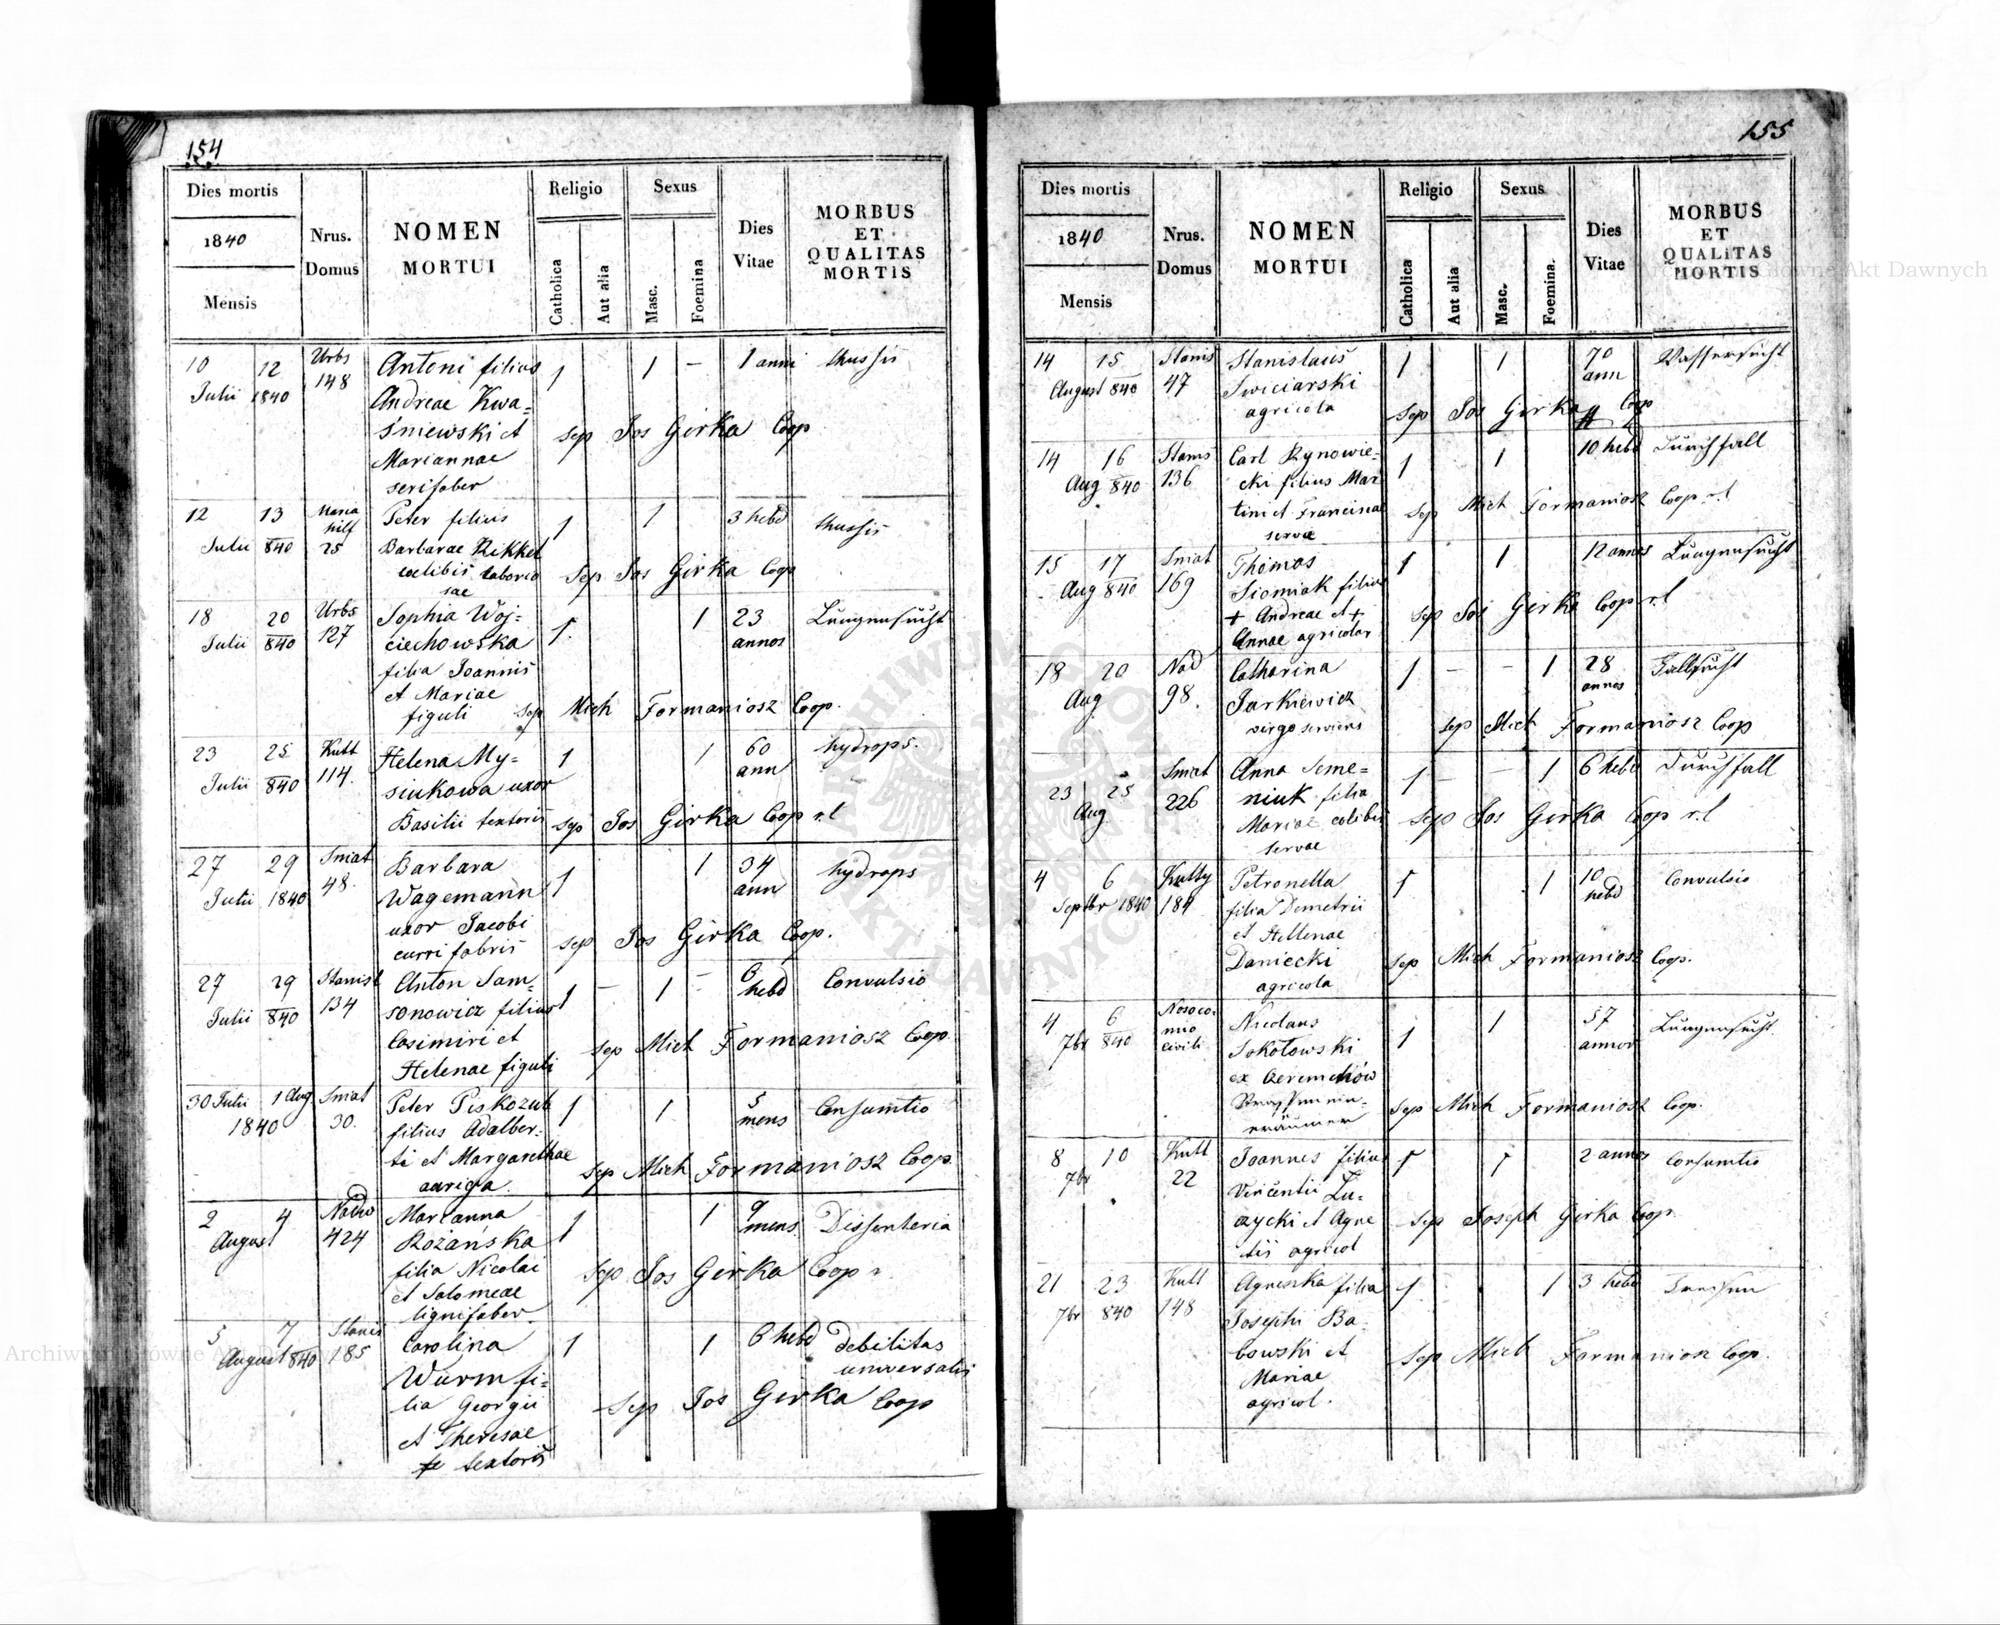 154
Dies mortis
1840
Mensis
Nrus.
Domus
NOMEN
MORTUI
Religio
Catholica
Aut alia
Sexus
Masc.
Foemina
Dies
Vitae
MORBUS
ET
QUALITAS
MORTIS
10 12 Urbs Antoni filius 1 1 – 1 anni thussis
Julii 1840 148 Andreae Kwa=
śniewski et Sep Jos Girka Coop
Mariannae
serifaber
12 13 Maria Peter filius 1 1 3 hebd thussis
Julii 840 hilf 25 Barbarae Rikkel
caelibis laborio Sep Jos Girka Coop
sae
18 20 Urbs Sophia Woj= 1. 1 23 Lungensucht
Julii 840 127 ciechowska annos
filia Joannis
et Mariae
figuli Sep Mich Formaniosz Coop.
23 25 Kutt Helena My= 1 1 60 hydrops.
Julii 840 114. siukowa uxor ann
Basilii textoris Sep Jos Girka Coop r.l
27 29 Sniat Barbara 1 1 34 hydrops
Julii 1840 48. Wagemann ann
uxor Jacobi
curri fabris Sep Jos Girka Coop.
27 29 Stanisl Anton Sam= 1 – 1 – 6 Convulsio
Julii 840 134 sonowicz filius hebd
Casimiri et
Helenae figuli Sep Mich Formaniosz Coop
30 Julii 1 Aug Sniat Peter Piskozub 1 1 5 Consumtio
1840 30. filius Adalber= mens
ti et Margarethae
auriga. Sep Mich Formaniosz Coop.
2 4 Nadw Marianna 1 1 9 Dissenteria
August 424 Rozańska mens
filia Nicolai Sep Jos Girka Coop
et Salomeae
lignifaber
5 7 Stanis Carolina 1 1 6 hebd debilitas
August 840 185 Wurm fi= universalis
lia Georgii Sep Jos Girka Coop
et Theresae
textoris
155
Dies mortis
1840
Mensis
Nrus.
Domus
NOMEN
MORTUI
Religio
Catholica
Aut alia
Sexus
Masc.
Foemina.
Dies
Vitae
MORBUS
ET
QUALITAS
MORTIS
14 15 Stanis Stanislaus 1 1 70 Wassersucht
August 840 47 Swiciarski ann
agricola Sep Jos Girka Coop
14 16 Stanis Carl Rynowie= 1 1 10 hebd Durchfall
Aug 840 136 cki filius Mar
tini et Franciscae Sep Mich Formaniosz Coop r.l
servae
15 17 Sniat Thomas 1 1 12 annos Lungensucht
Aug 840 169 Siomiak filius
+ Andreae et + Sep Jos Girka Coop r.l
Annae agricolar
18 20 Nad Catharina 1 – – 1 28 Fallsucht
Aug 98. Jarkiewicz annos
virgo serviens Sep Mich Formaniosz Coop
23 25 Sniat Anna Seme= 1 – – 1 6 hebd Durchfall
Aug 226 niuk filia
Mariae celibis Sep Jos Girka Coop r.l
servae
4 6 Kutty Petronella 1 1 10 Convulsio
Septbr 1840 184 filia Demetrii hebd
et Hellenae
Daniecki Sep Mich Formaniosz Coop.
agricola
4 6 Nosoco= Nicolaus 1 1 57 Lungensucht
7br 840 mio Sokołowski annor
civili ex Czeremchów
Strassenein=
räumer Sep Mich Formaniosz Coop.
8 10 Kutt Joannes filius 1 1 2 annos Consumtio
7br 22 Vincentii Lu=
czycki et Agne Sep Joseph Girka Coop
tis agricol
21 23 Kutt Agneszka filia 1 1 3 hebd
7br 840 148 Josephi Ba=
bowski et Sep Mich Formaniosz Coop.
Mariae
agricol.
Archiwum Główne Akt Dawnych
Archiwum Główne Akt Dawnych
ARCHIWUM GŁÓWNE
AKT DAWNYCH